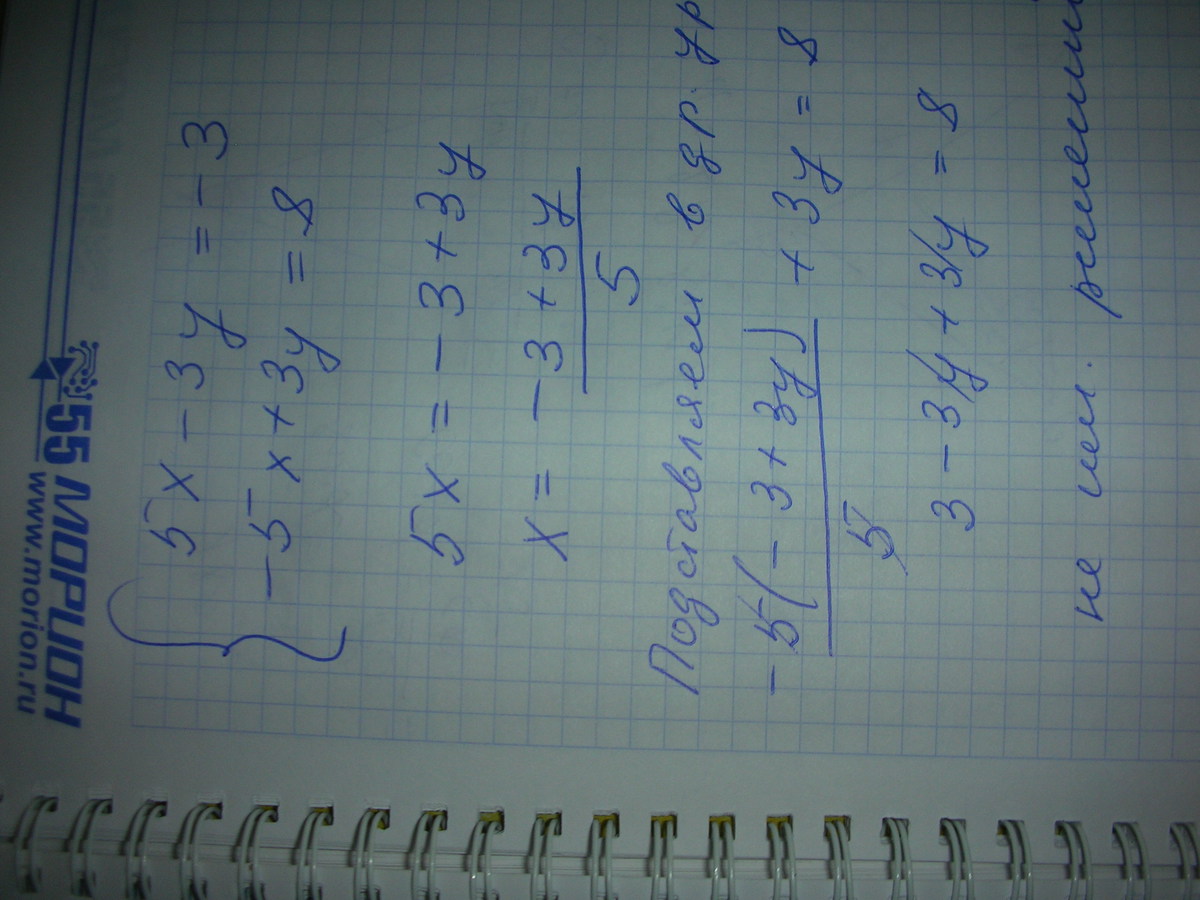 55 МОРИОН
www.morion.ru
5x - 3y = -3
-5x + 3y = 8
5x = -3 + 3y
x = -3 + 3y
5
Подставляем в др. ур
-5(-3 + 3y) + 3y = 8
5
3 - 3y + 3y = 8
не им. решений